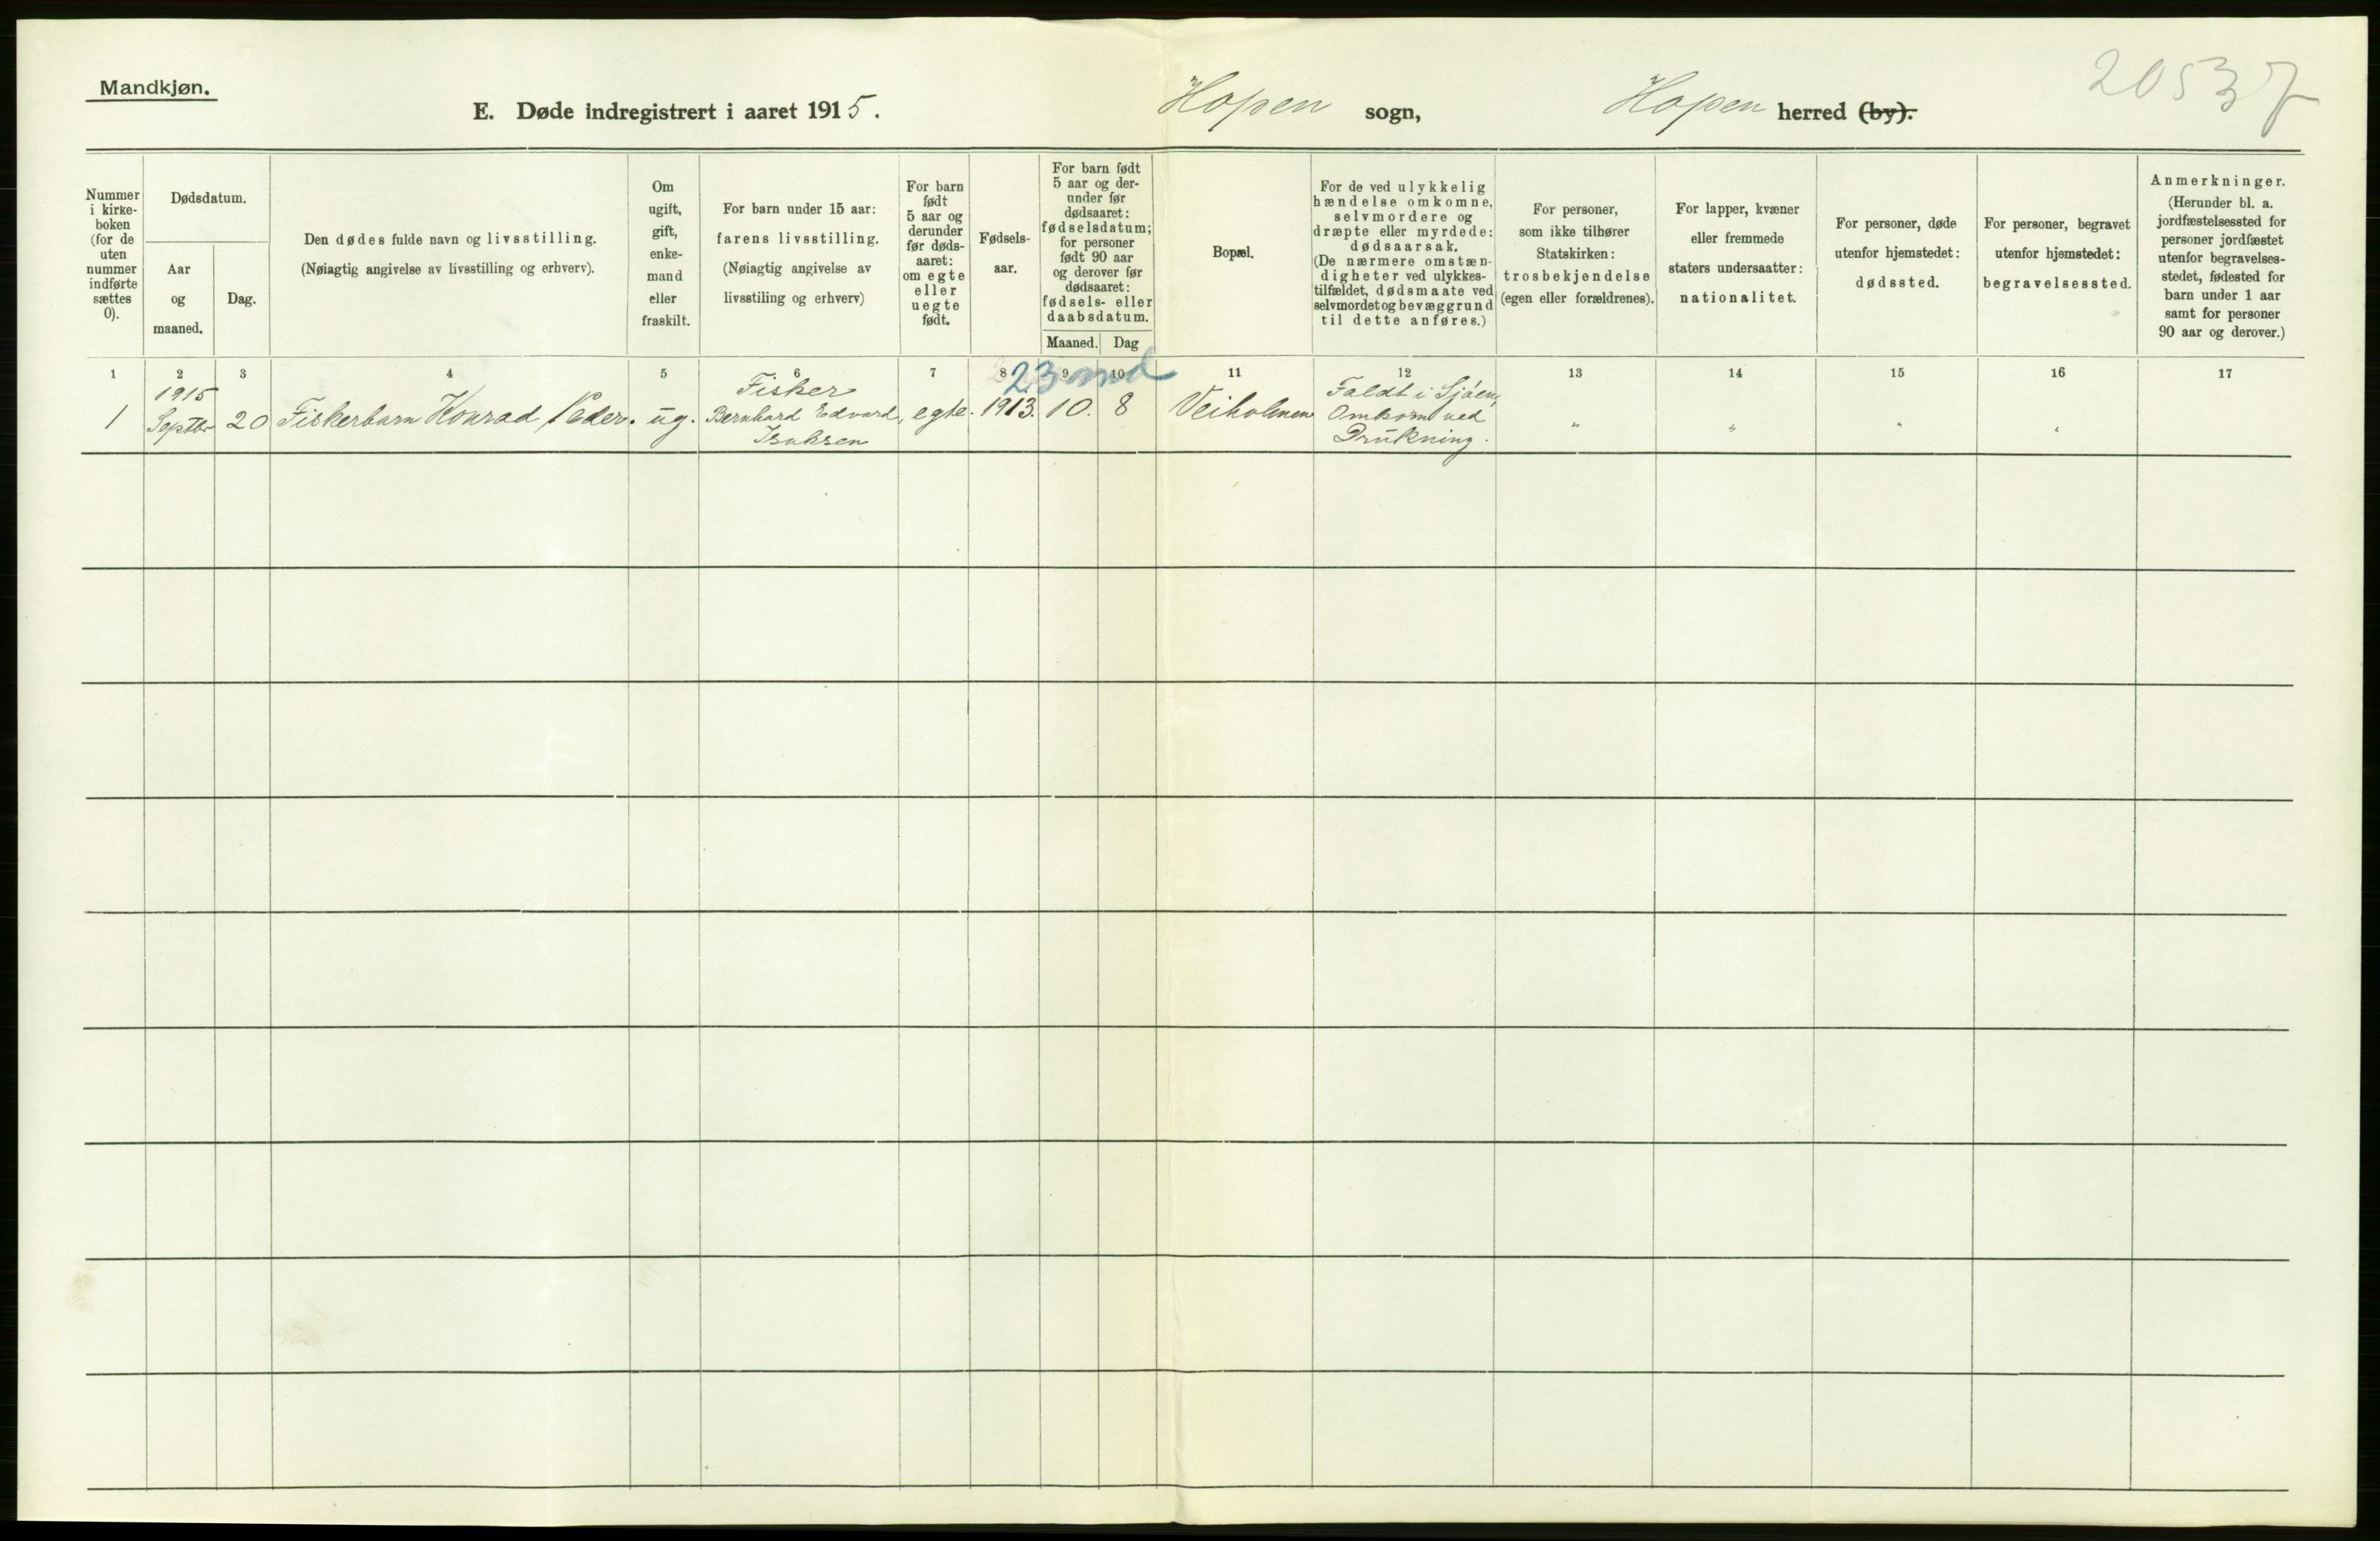 Mandkjøn.
E. Døde indregistrert i aaret 1915. Hopen sogn, Hopen herred (by).
20537
Nummer i kirke-boken (for de uten nummer indførte sættes 0).
Dødsdatum.
Aar og maaned.
Dag.
Den dødes fulde navn og livsstilling.
(Nøiagtig angivelse av livsstilling og erhverv).
Om ugift, gift, enke-mand eller fraskilt.
For barn under 15 aar:
farens livsstilling.
(Nøiagtig angivelse av
livsstiling og erhverv)
For barn født 5 aar og derunder før døds-aaret: om egte eller uegte født.
Fødsels-aar.
For barn født
5 aar og der-
under før
dødsaaret:
fødselsdatum;
for personer
født 90 aar
og derover før
dødsaaret:
fødsels- eller
daabsdatum.
Maaned. Dag
Bopæl.
For de ved ulykkelig
hændelse omkomne,
selvmordere og
dræpte eller myrdede:
dødsaarsak.
(De nærmere omstæn-
digheter ved ulykkes-
tilfældet, dødsmaate ved
selvmordet og bevæggrund
til dette anføres.)
For personer,
som ikke tilhører
Statskirken:
trosbekjendelse
(egen eller forældrenes).
For lapper, kvæner
eller fremmede
staters undersaatter:
nationalitet.
For personer, døde
utenfor hjemstedet:
dødssted.
For personer, begravet
utenfor hjemstedet:
begravelsessted.
Anmerkninger.
(Herunder bl. a.
jordfæstelsessted for
personer jordfæstet
utenfor begravelses-
stedet, fødested for
barn under 1 aar
samt for personer
90 aar og derover.)
1 2 3 4 5 6 7 8 9 10 11 12 13 14 15 16 17
23 mnd
1915 Fisker Faldt i Sjøen,
1 Septbr 20 Fiskerbarn Konrad Peder. ug. Bernhard Edvard, egte. 1913. 10. 8 Veiholmen Omkom ved " " " "
Isaksen Drukning.